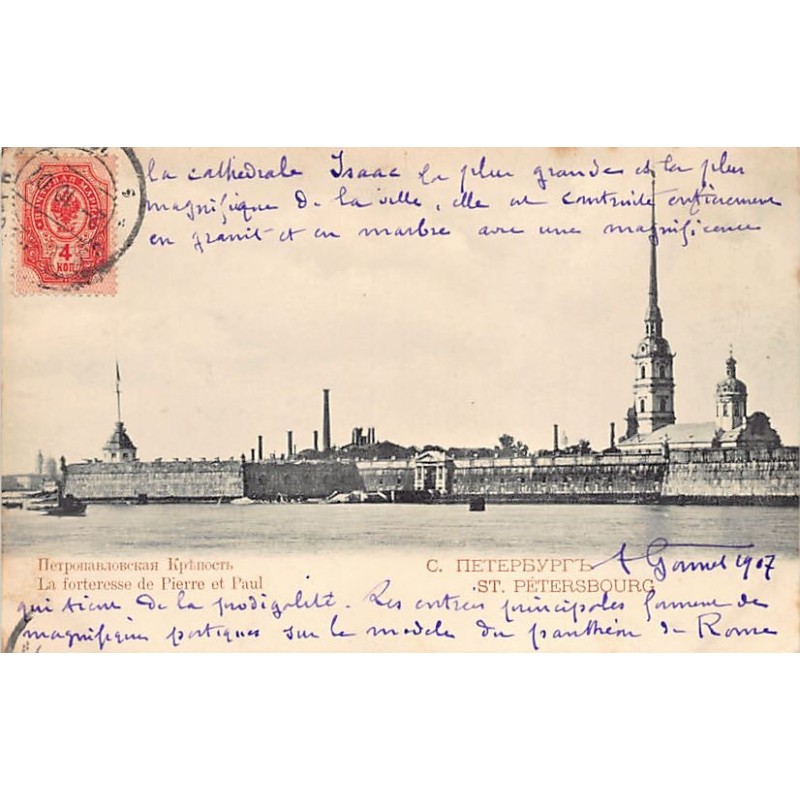 la cathédrale Isaac la plus grande et la plus
magnifique de la ville, elle est construite entièrement
en granit et en marbre avec une magnificence
4
КОП.
Петропавловская Крѣпость
La forteresse de Pierre et Paul
С. ПЕТЕРБУРГЪ
ST. PÉTERSBOURG
1907
qui tient de la prodigalité. Les entrées principales forment de
magnifiques portiques sur le modèle du panthéon de Rome